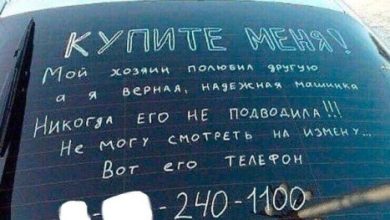 КУПИТЕ МЕНЯ!
Мой хозяин полюбил другую
а я верная, надежная машинка
Никогда его не подводила!!!
Не могу смотреть на измену...
Вот его телефон
-240-1100